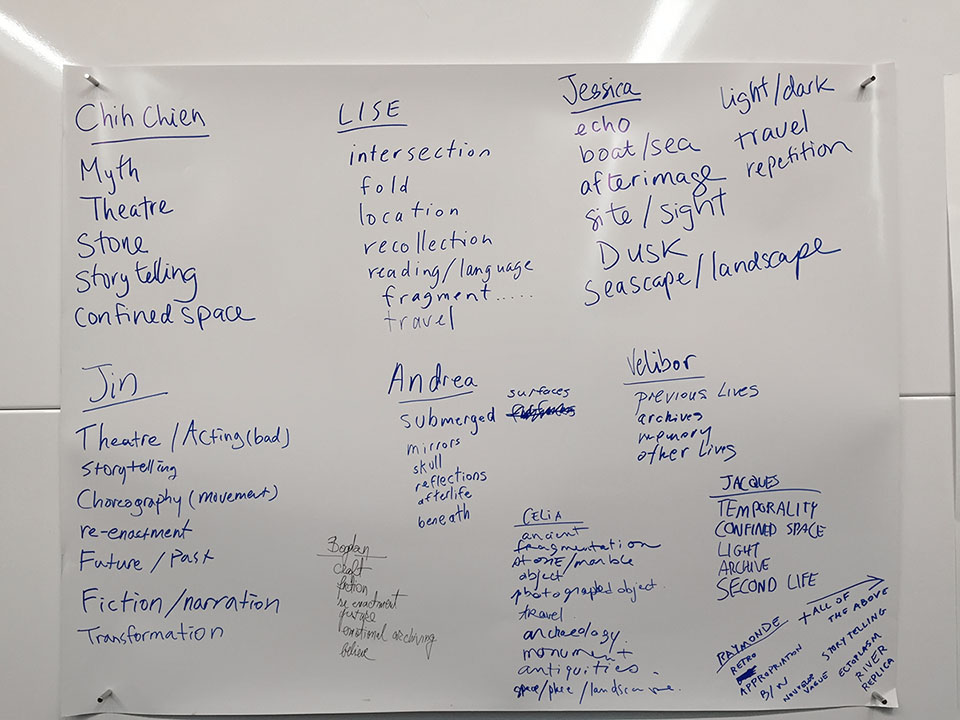 Chih Chien
Myth
Theatre
Stone
Storytelling
confined space
LISE
intersection
fold
location
recollection
reading/language
fragment.....
travel
Jessica
echo
boat/sea
afterimage
site/sight
DUSK
seascape/landscape
light/dark
travel
repetition
Jin
Theatre/Acting(bad)
storytelling
Choreography (movement)
re-enactment
Future/Past
Fiction/narration
Transformation
Andrea
submerged surfaces
mirrors
skull
reflections
afterlife
beneath
Velibor
previous lives
archives
memory
other lives
Bogdan
craft
fiction
re enactment
future
emotional archiving
believe
CELIA
ancient
fragmentation
STONE/marble
object
photographed object
travel
archaeology
monument
antiquities
space/place/landscape
JACQUES
TEMPORALITY
CONFINED SPACE
LIGHT
ARCHIVE
SECOND LIFE
RAYMONDE + ALL OF THE ABOVE
RETRO
APPROPRIATION
B/W
NOUVELLE VAGUE
STORYTELLING
ECTOPLASM
RIVER
REPLICA